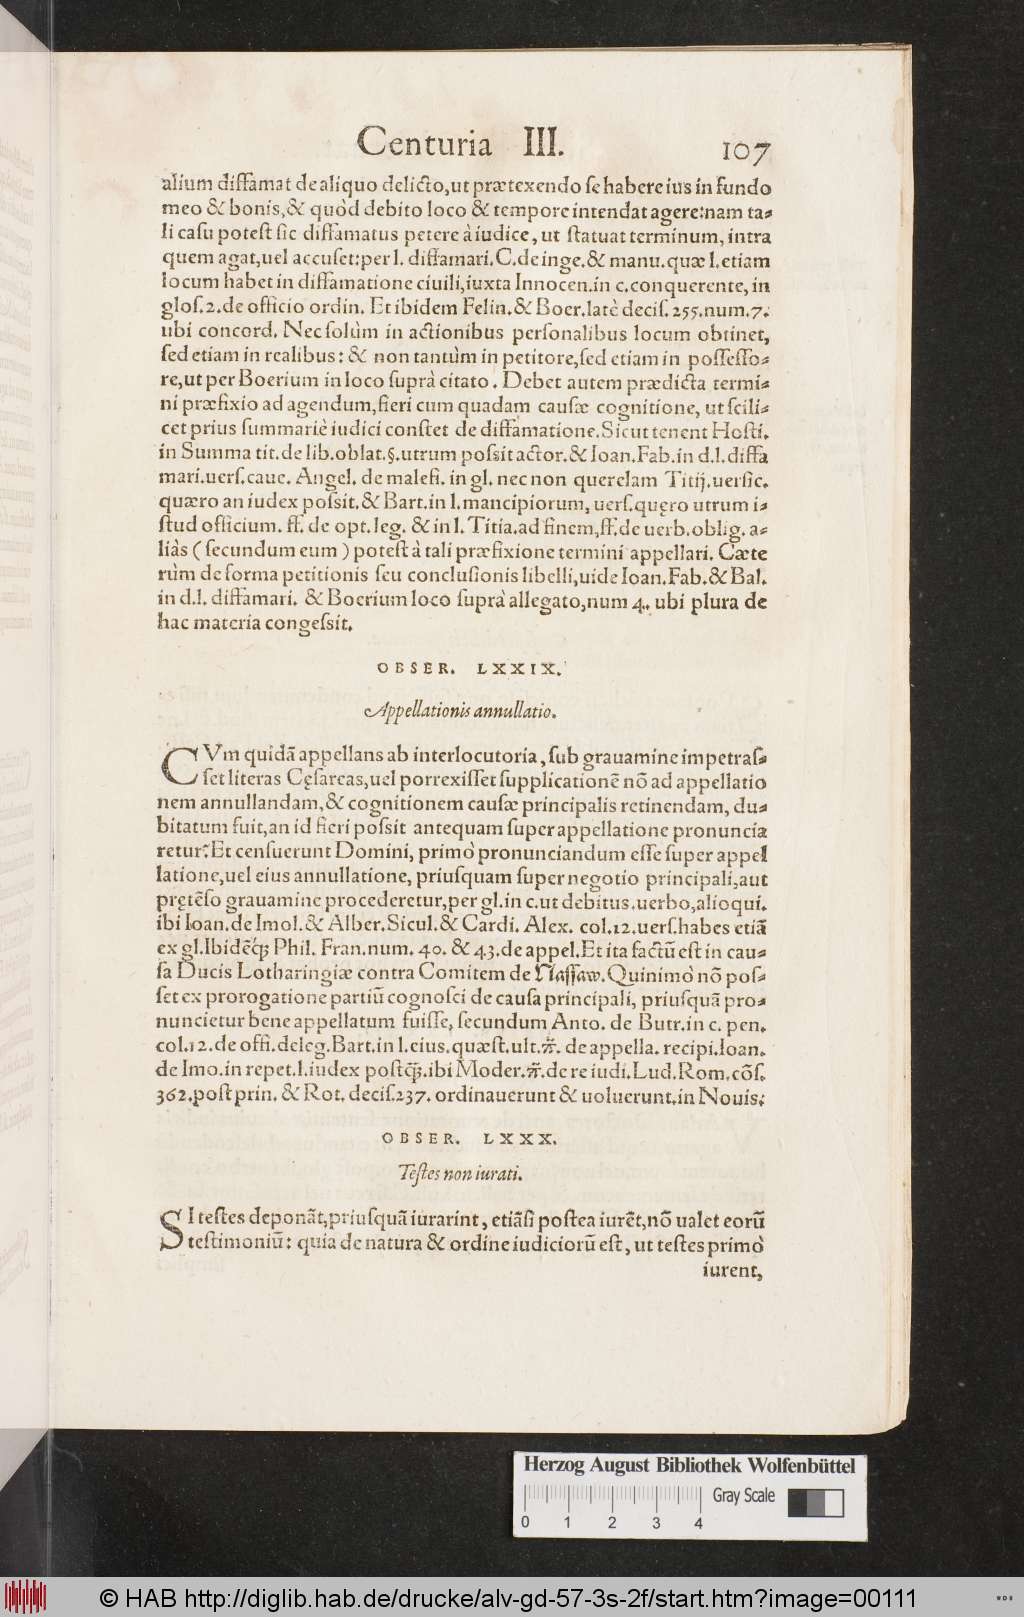 Centuria III. 107
alium diffamat de aliquo delicto, ut prætexendo se habere ius in fundo
meo & bonis, & quòd debito loco & tempore intendat agere: nam ta-
li casu potest sic diffamatus petere à iudice, ut statuat terminum, intra
quem agat, uel accuset: per l. diffamari. C. de inge. & manu. quæ l. etiam
locum habet in diffamatione ciuili, iuxta Innocen. in c. conquerente, in
glos. 2. de officio ordin. Et ibidem Felin. & Boer. latè decis. 255. num. 7.
ubi concord. Nec solùm in actionibus personalibus locum obtinet,
sed etiam in realibus: & non tantùm in petitore, sed etiam in possesso-
re, ut per Boerium in loco suprà citato. Debet autem prædicta termi-
ni præfixio ad agendum, fieri cum quadam causæ cognitione, ut scili-
cet prius summariè iudici constet de diffamatione. Sicut tenent Hosti.
in Summa tit. de lib. oblat. §. utrum possit actor. & Ioan. Fab. in d. l. diffa
mari. uers. caue. Angel. de malefi. in gl. nec non querelam Titij. uersic.
quæro an iudex possit. & Bart. in l. mancipiorum, uers. quęro utrum i-
stud officium. ff. de opt. leg. & in l. Titia. ad finem, ff. de uerb. oblig. a-
liàs (secundum eum) potest à tali præfixione termini appellari. Cæte
rùm de forma petitionis seu conclusionis libelli, uide Ioan. Fab. & Bal.
in d. l. diffamari. & Boerium loco suprà allegato, num 4. ubi plura de
hac materia congessit.
OBSER. LXXIX.
Appellationis annullatio.
CVm quidā appellans ab interlocutoria, sub grauamine impetras-
set literas Cęsareas, uel porrexisset supplicationē nō ad appellatio
nem annullandam, & cognitionem causæ principalis retinendam, du-
bitatum fuit, an id fieri possit antequam super appellatione pronuncia
retur? Et censuerunt Domini, primò pronunciandum esse super appel
latione, uel eius annullatione, priusquam super negotio principali, aut
prętēso grauamine procederetur, per gl. in c. ut debitus. uerbo, alioqui.
ibi Ioan. de Imol. & Alber. Sicul. & Cardi. Alex. col. 12. uers. habes etiā
ex gl. Ibidēq́; Phil. Fran. num. 40. & 43. de appel. Et ita factū est in cau-
sa Ducis Lotharingiæ contra Comitem de Nassaw. Quinimò nō pos-
set ex prorogatione partiū cognosci de causa principali, priusquā pro-
nuncietur bene appellatum fuisse, secundum Anto. de Butr. in c. pen.
col. 12. de offi. deleg. Bart. in l. eius. quæst. ult. ff. de appella. recipi. Ioan.
de Imo. in repet. l. iudex postq̃;. ibi Moder. ff. de re iudi. Lud. Rom. cōs.
362. post prin. & Rot. decis. 237. ordinauerunt & uoluerunt. in Nouis.
OBSER. LXXX.
Testes non iurati.
SI testes deponāt, priusquā iurarint, etiāsi postea iurēt, nō ualet eorū
testimoniū: quia de natura & ordine iudiciorū est, ut testes primò
iurent,
Herzog August Bibliothek Wolfenbüttel
Gray Scale
0 1 2 3 4
© HAB http://diglib.hab.de/drucke/alv-gd-57-3s-2f/start.htm?image=00111